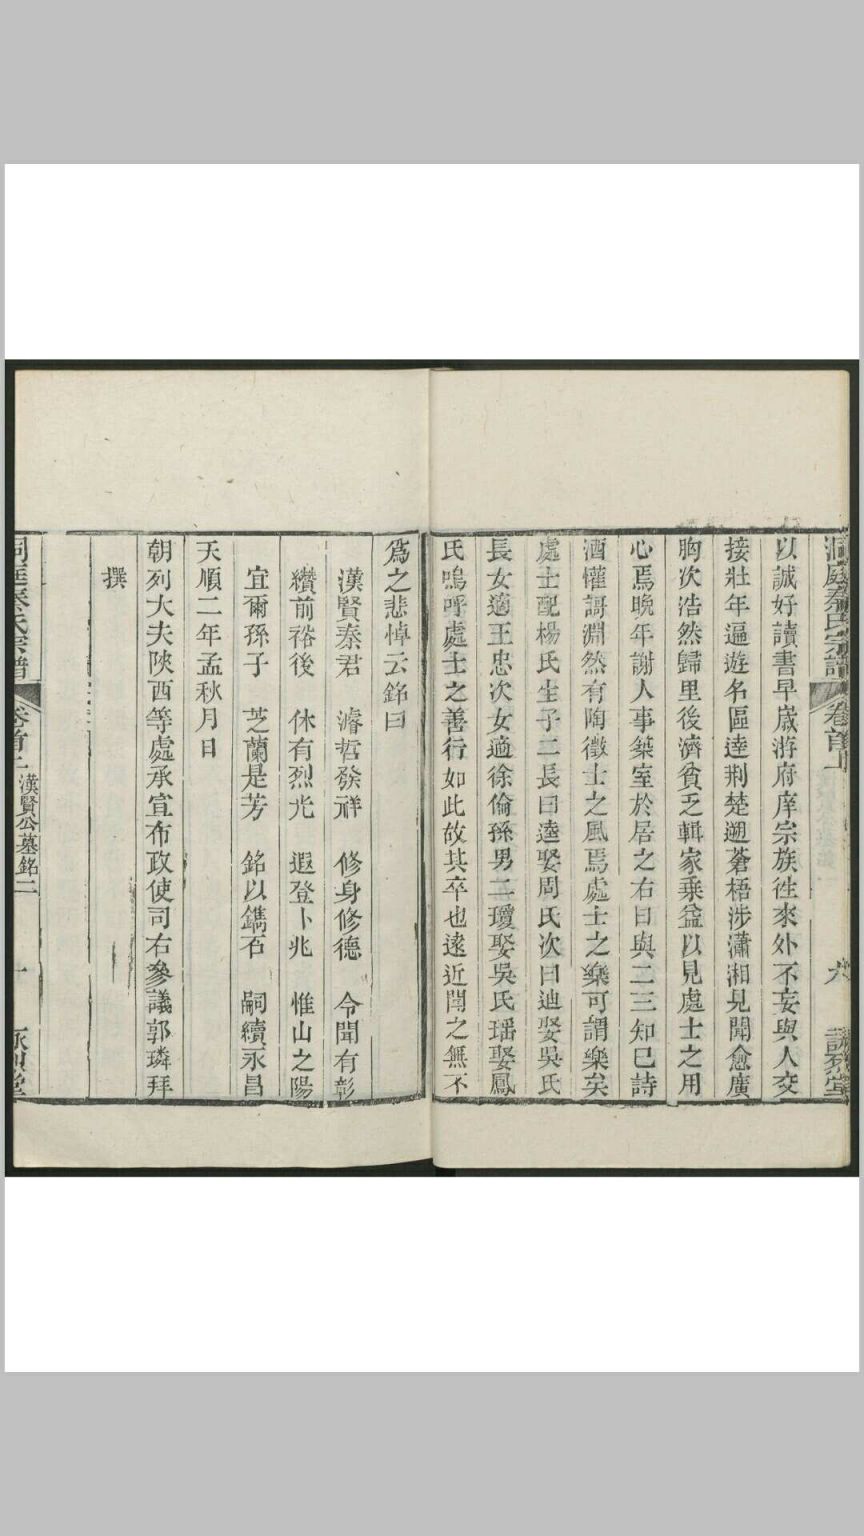 洞庭秦氏宗譜 卷首上 六 詠烈堂
以誠好讀書早歲游府庠宗族徃來外不妄與人交
接壯年遍遊名區逹荆楚遡蒼梧涉瀟湘見聞愈廣
胸次浩然歸里後濟貧乏輯家乗益以見處士之用
心焉晚年謝人事築室於居之右日與二三知巳詩
酒懽謌淵然有陶徵士之風焉處士之樂可謂樂矣
處士配楊氏生子二長曰逵娶周氏次曰迪娶吳氏
長女適王忠次女適徐倫孫男二瓊娶吳氏瑶娶鳳
氏嗚呼處士之善行如此故其卒也遠近聞之無不
爲之悲悼云銘曰
漢賢秦君 濬哲發祥 修身修德 令聞有彰
纘前裕後 休有烈光 遐登卜兆 惟山之陽
宜爾孫子 芝蘭是芳 銘以鐫石 嗣續永昌
天順二年孟秋月日
朝列大夫陝西等處承宣布政使司右參議郭璘拜
撰
洞庭秦氏宗譜 卷首上 漢賢公墓銘二 十 詠烈堂